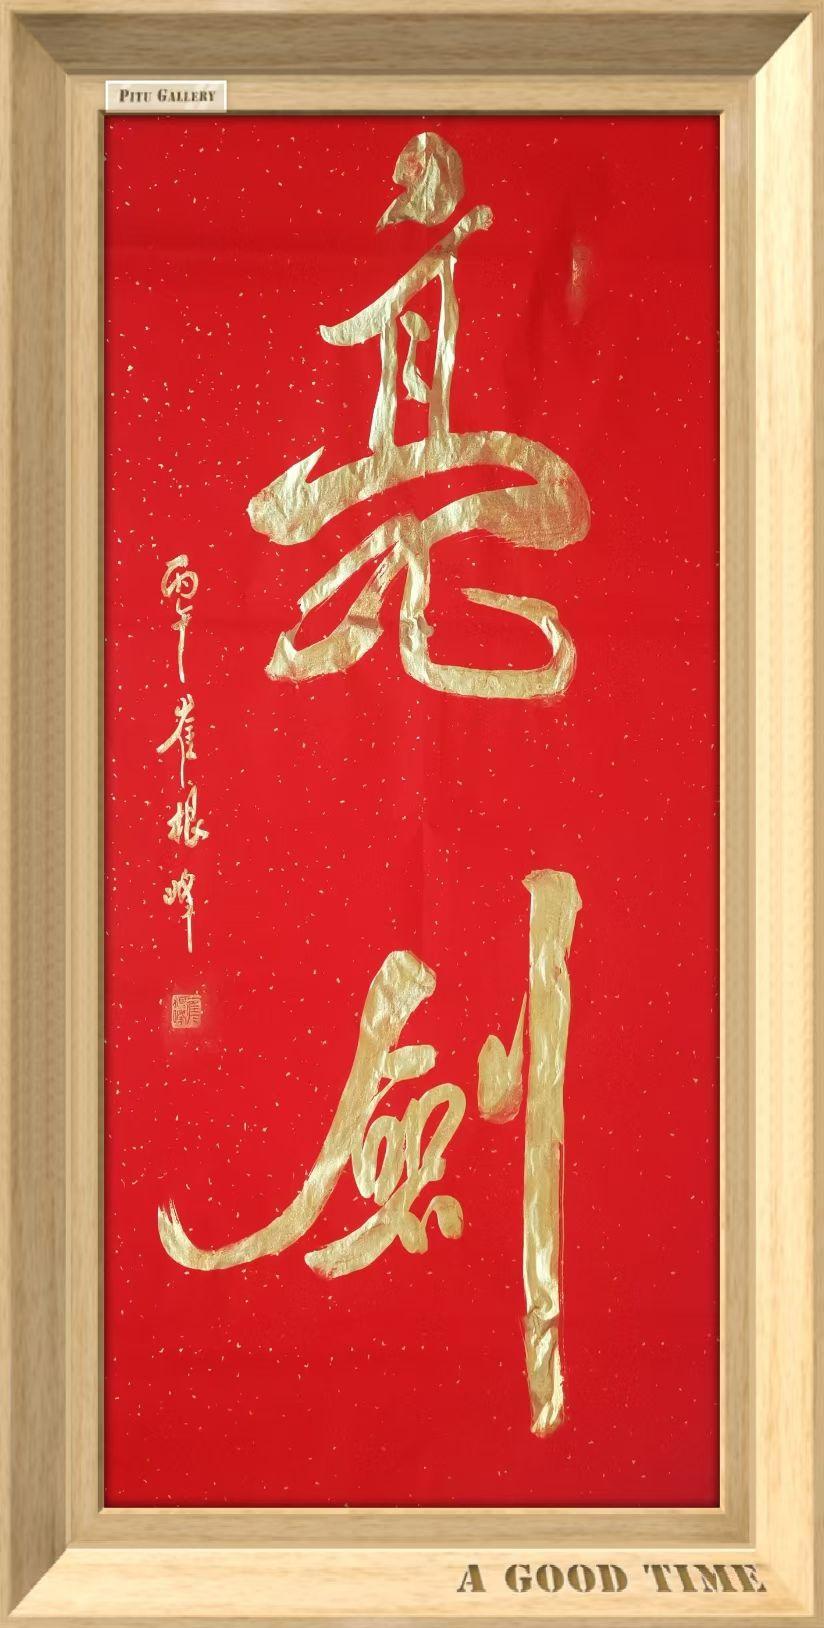 PITU GALLERY
亮剑
丙午崔根峰
A GOOD TIME